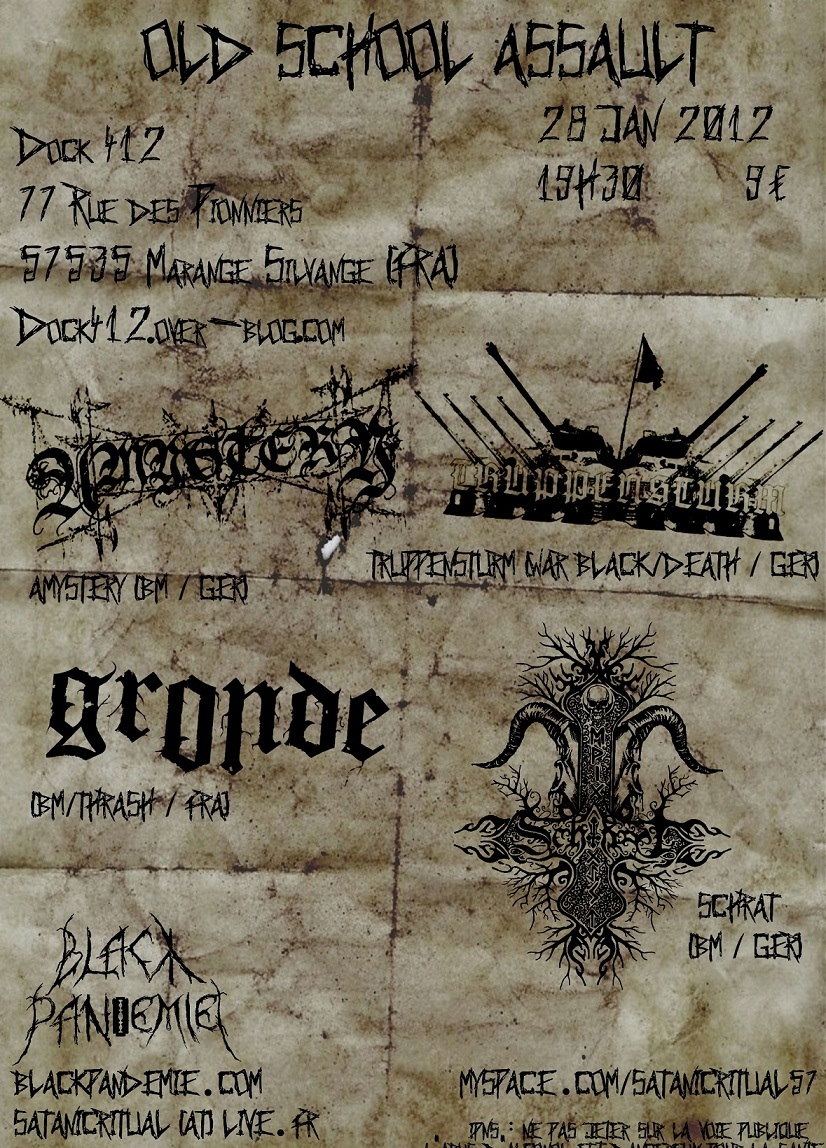 OLD SCHOOL ASSAULT
28 JAN 2012
19H30 9€
DOCK 412
77 RUE DES PIONNIERS
57535 MARANGE SILVANGE (FRA)
DOCK412.OVER-BLOG.COM
AMYSTERY
TRUPPENSTURM
TRUPPENSTURM (WAR BLACK/DEATH / GER)
AMYSTERY (BM / GER)
gronde
(BM/THRASH / FRA)
Schrat
SCHRAT
(BM / GER)
BLACK
PANDEMIE
BLACKPANDEMIE.COM
MYSPACE.COM/SATANICRITUAL57
SATANICRITUAL (AT) LIVE.FR
IPNS.: NE PAS JETER SUR LA VOIE PUBLIQUE